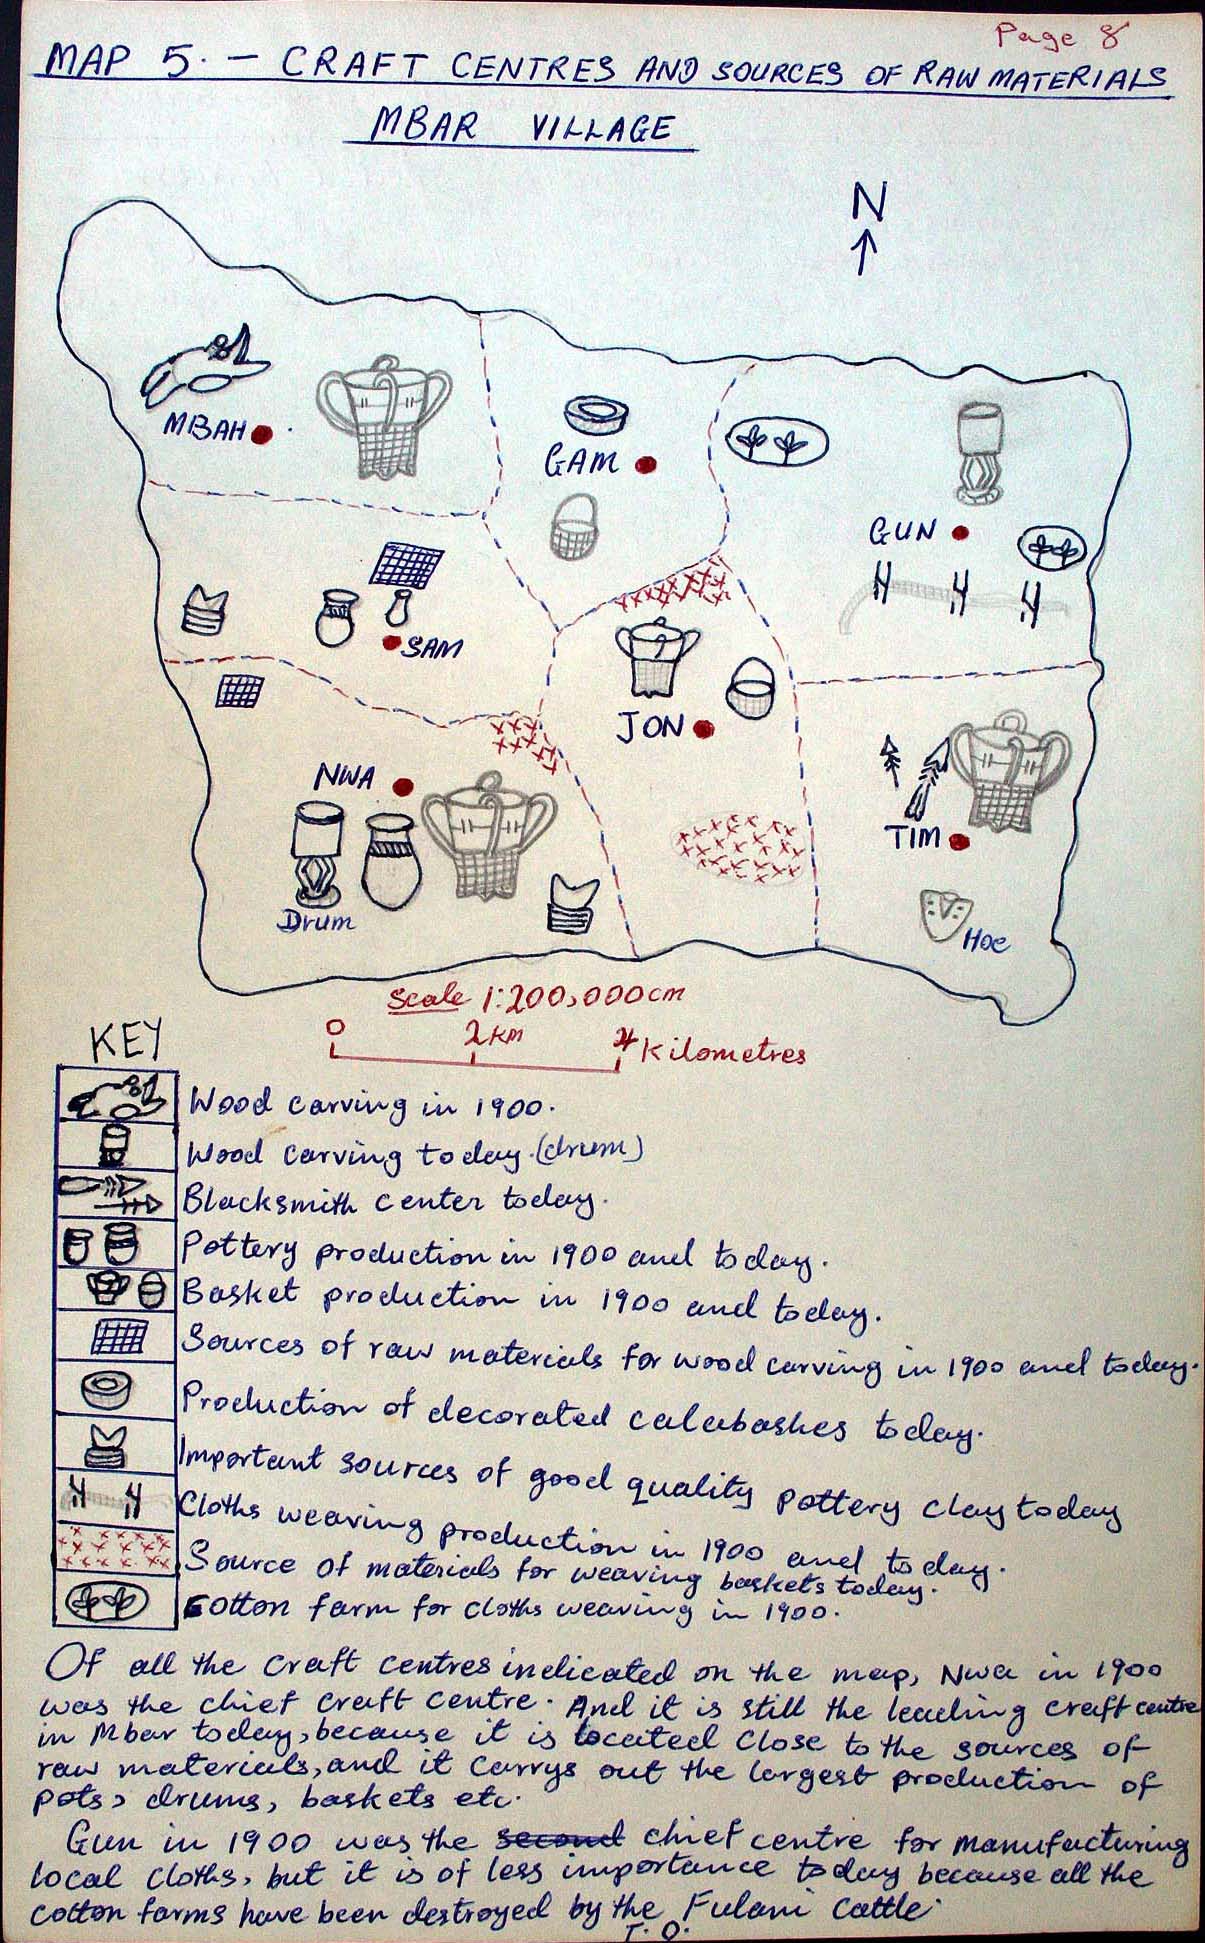 Page 8
MAP 5. - CRAFT CENTRES AND SOURCES OF RAW MATERIALS
MBAR VILLAGE
N
MBAH
GAM
GUN
SAM
JON
NWA
TIM
Drum
Hoe
Scale 1:200,000cm
0 2km 4 Kilometres
KEY
Wood carving in 1900.
Wood carving today. (drum)
Blacksmith center today.
Pottery production in 1900 and today.
Basket production in 1900 and today.
Sources of raw materials for wood carving in 1900 and today.
Production of decorated calabashes today.
Important sources of good quality pottery clay today
Cloths weaving production in 1900 and today.
Source of materials for weaving baskets today.
Cotton farm for cloths weaving in 1900.
Of all the craft centres indicated on the map, Nwa in 1900
was the chief craft centre. And it is still the leading craft centre
in Mbar today, because it is located close to the sources of
raw materials, and it carrys out the largest production of
pots, drums, baskets etc.
Gun in 1900 was the second chief centre for manufacturing
local cloths, but it is of less importance today because all the
cotton farms have been destroyed by the Fulani cattle.
T. O.